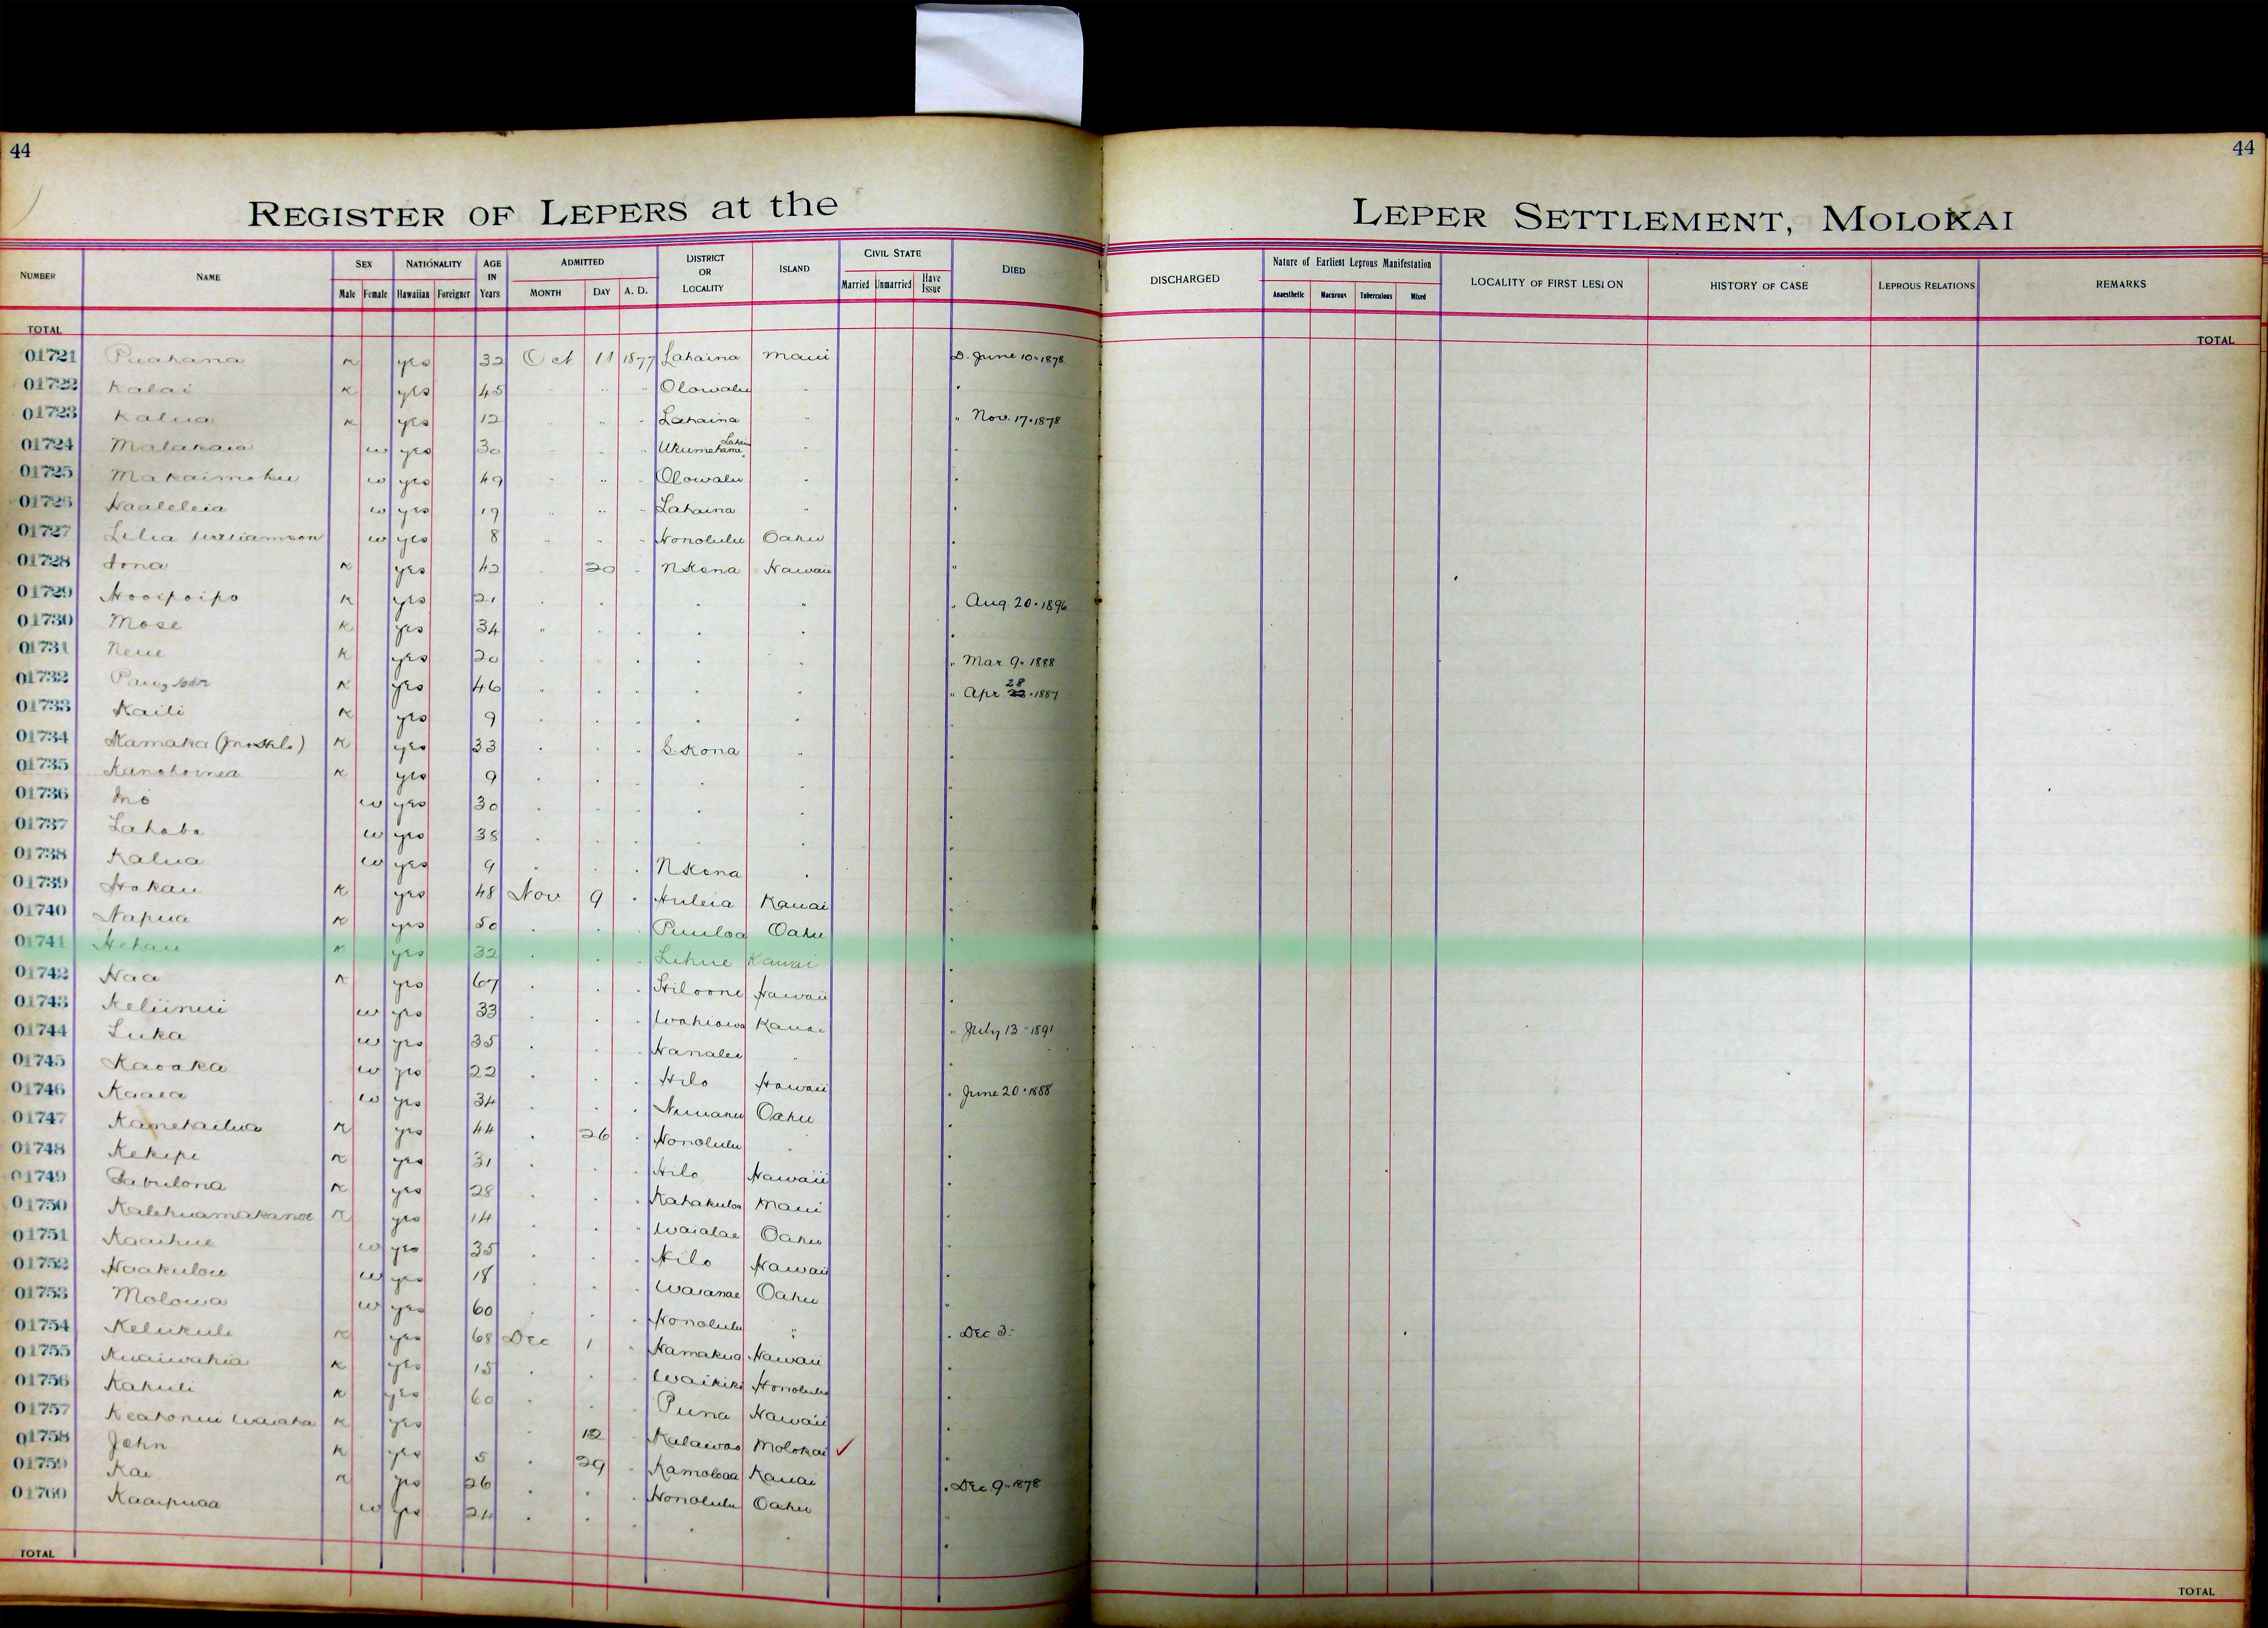 44
44
REGISTER OF LEPERS at the
LEPER SETTLEMENT, MOLOKAI
NUMBER NAME SEX Male Female NATIONALITY Hawaiian Foreigner AGE IN Years ADMITTED MONTH DAY A. D. DISTRICT OR LOCALITY ISLAND CIVIL STATE Married Unmarried Have Issue DIED
DISCHARGED Nature of Earliest Leprous Manifestation Anaesthetic Macurous Tuberculous Mixed LOCALITY OF FIRST LESION HISTORY OF CASE LEPROUS RELATIONS REMARKS
TOTAL
TOTAL
01721 Puahana K yes 32 Oct 11 1877 Lahaina Maui D. June 10 " 1878
01722 Kalai K yes 45 " " " Olowalu " "
01723 Kalua K yes 12 " " " Lahaina " " Nov. 17 " 1878
01724 Malakaia w yes 30 " " " Ukumehame " "
01725 Makaimoku w yes 49 " " " Olowalu " "
01726 Haaleleia w yes 19 " " " Lahaina " "
01727 Lilia Williamson w yes 8 " " " Honolulu Oahu "
01728 Iona K yes 42 " 20 " N Kona Hawaii "
01729 Hooipoipo K yes 21 " " " " " " Aug. 20 " 1896
01730 Mose K yes 34 " " " " " "
01731 Neue K yes 20 " " " " " " Mar. 9 " 1888
01732 John K yes 46 " " " " " " Apr 28 " 1887
01733 Kaili K yes 9 " " " " " "
01734 Kamaka K yes 33 " " " S. Kona " "
01735 K yes 9 " " " " " "
01736 w yes 30 " " " " " "
01737 w yes 38 " " " " " "
01738 Kalua w yes 9 " " " N Kona " "
01739 Hokau K yes 48 Nov 9 " Huleia Kauai "
01740 Napua K yes 50 " " " Puuloa Oahu "
01741 Hehau K yes 32 " " " Lihue Kauai "
01742 Naa K yes 67 " " " Hawaii "
01743 Keliinui w yes 33 " " " Wahiawa Kauai " July 13 " 1891
01744 Luka w yes 35 " " " Hanalei " "
01745 Kaoaka w yes 22 " " " Hilo Hawaii " June 20 " 1888
01746 Kaaea w yes 34 " " " Nuuanu Oahu "
01747 Kamehailua K yes 44 " 26 " Honolulu " "
01748 Kekipi K yes 31 " " " Hilo Hawaii "
01749 Zabulona K yes 28 " " " Kahakuloa Maui "
01750 Kalehuamakanoe K yes 14 " " " Waialae Oahu "
01751 Kaaihue w yes 35 " " " Hilo Hawaii "
01752 Haakulou w yes 18 " " " Waianae Oahu "
01753 Molowa w yes 60 " " " Honolulu " " Dec 3.
01754 Kelikuli K yes 68 Dec 1 " Hamakua Hawaii "
01755 Kuaiwahia K yes 15 " " " Waikiki Honolulu "
01756 Kahuli K yes 60 " " " Puna Hawaii "
01757 Keahonui Waiaha K yes " 12 " Kalawao Molokai ✓ "
01758 John K yes 5 " 29 " Kamoloaa Kauai " Dec 9 " 1878
01759 Kai K yes 26 " " " Honolulu Oahu "
01760 Kaaipuaa w yes 24 " " " " " "
TOTAL
TOTAL